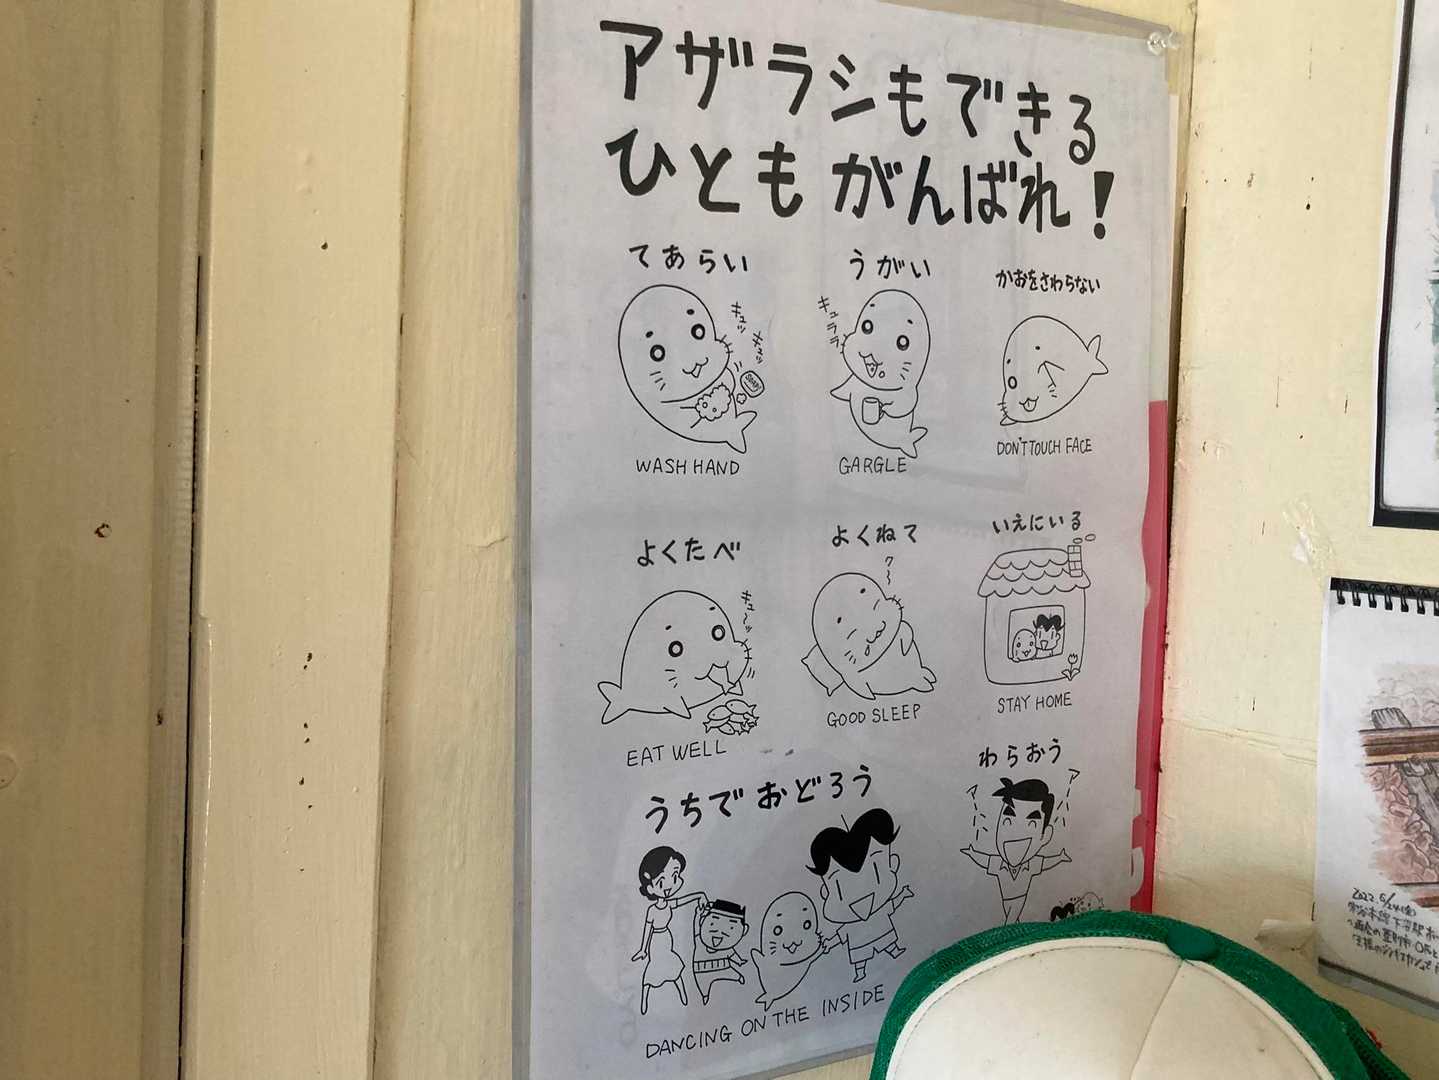 アザラシもできる
ひともがんばれ!
てあらい
うがい
かおをさわらない
キュッ
キュッ
SOAP
キュララ
WASH HAND
GARGLE
DON'T TOUCH FACE
よくたべ
よくねて
いえにいる
キューッ
クー
EAT WELL
GOOD SLEEP
STAY HOME
うちでおどろう
わらおう
ア
ア
DANCING ON THE INSIDE
2022 5/24